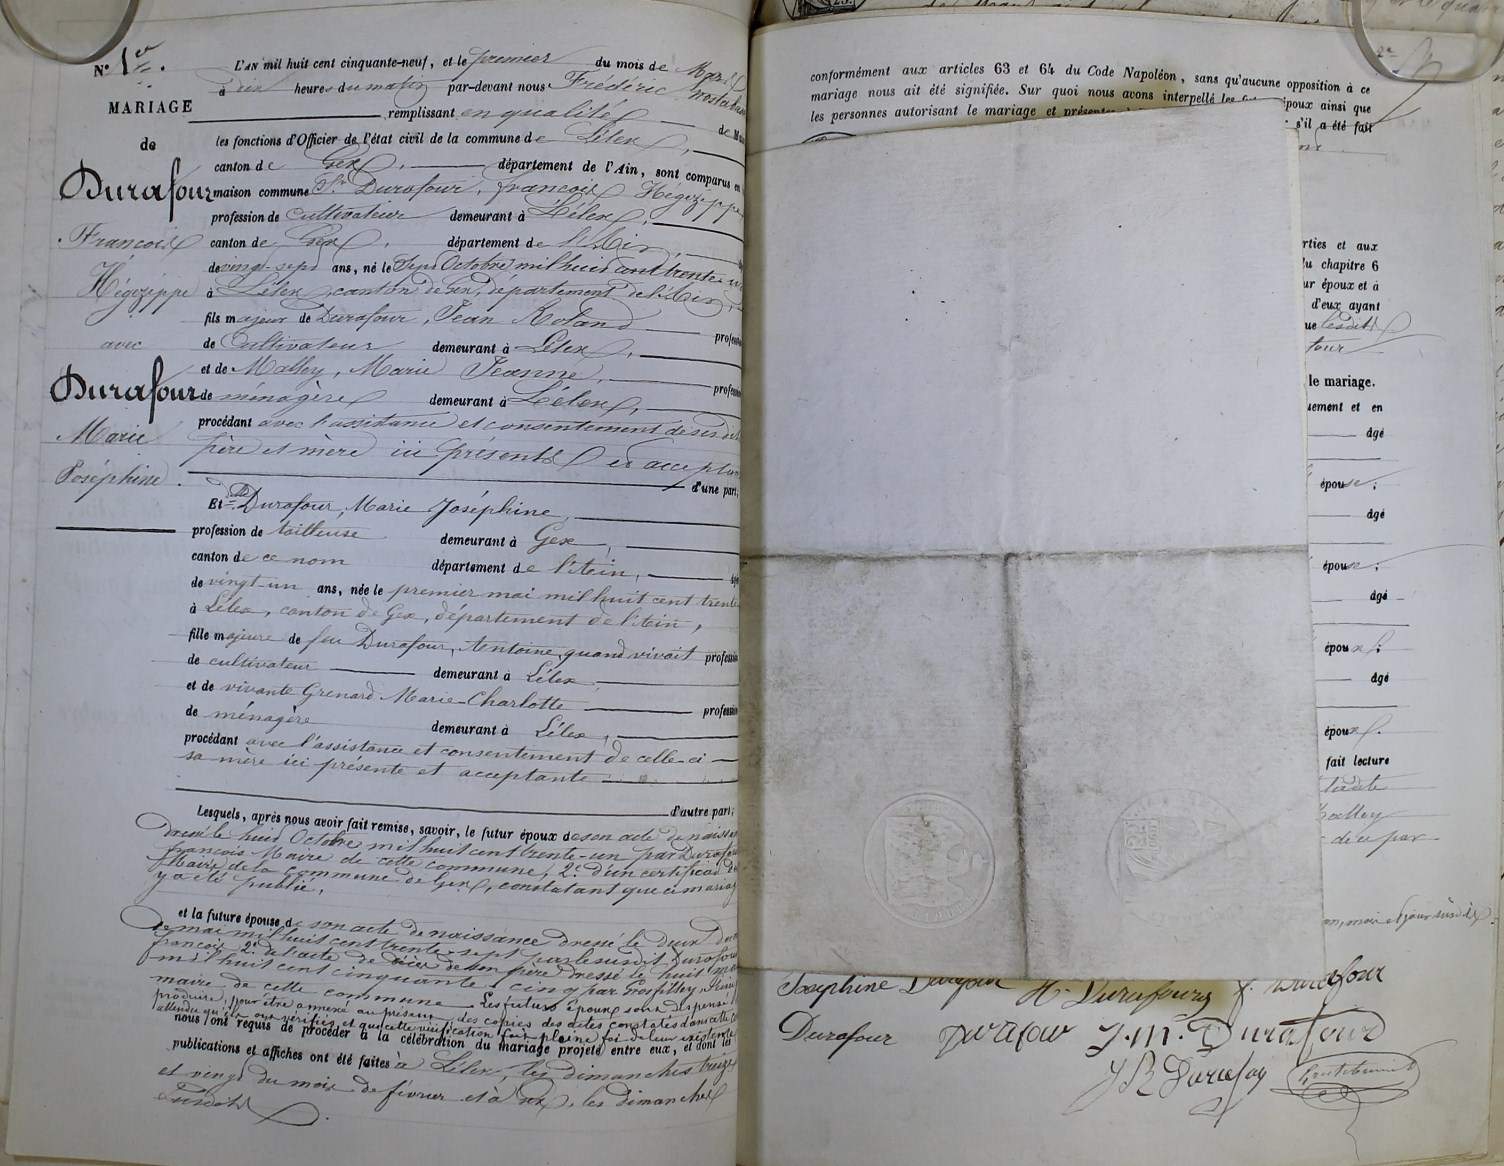 N° 1er
MARIAGE
de
Durafour
François
Hégezippe
avec
Durafour
Marie
Joséphine.
L'AN mil huit cent cinquante-neuf, et le premier du mois de Mars
à dix heures du matin par-devant nous Frédéric
remplissant en qualité de
les fonctions d'Officier de l'état civil de la commune de Lélex,
canton de Gex, département de l'Ain, sont comparus en
maison commune Sr Durafour, françois Hégezippe
profession de cultivateur demeurant à Lélex,
canton de Gex, département de l'Ain,
de vingt-sept ans, né le Sept Octobre mil huit cent trente-un
à Lélex, canton de Gex, département de l'Ain,
fils majeur de Durafour, Jean Roland profession
de Cultivateur demeurant à Lélex,
et de Malley, Marie Jeanne, profession
de ménagère demeurant à Lélex,
procédant avec l'assistance et consentement de ses dits
père et mère ici présents et acceptant
d'une part;
Et Dlle Durafour, Marie Joséphine,
profession de tailleuse demeurant à Gex,
canton de ce nom département de l'Ain,
de vingt-un ans, née le premier mai mil huit cent trente
à Lélex, canton de Gex, département de l'Ain,
fille majeure de feu Durafour, Antoine, quand vivait profession
de cultivateur demeurant à Lélex
et de vivante Grenard Marie-Charlotte profession
de ménagère demeurant à Lélex,
procédant avec l'assistance et consentement de celle-ci
sa mère ici présente et acceptante
d'autre part;
Lesquels, après nous avoir fait remise, savoir, le futur époux de son acte de naissance
dressé le huit Octobre mil huit cent trente-un par Durafour
françois Maire de cette commune, 2° d'un certificat du
Maire de la commune de Gex, constatant que ce mariage
y a été publié,
et la future épouse de son acte de naissance dressé le deux du
de mai mil huit cent trente-sept par le susdit Durafour
françois 2° de l'acte de décès de son père dressé le huit
mil huit cent cinquante-cinq par Grosfilley
maire de cette commune. Les futurs époux sont dispensé
produire, pour être annexé au présent, des copies des actes constatés dans cette
attendu qu'ils ont vérifiés et que cette vérification fait pleine foi de leur existence
nous ont requis de procéder à la célébration du mariage projeté entre eux, et dont les
publications et affiches ont été faites à Lélex, les dimanches treize
et vingt du mois de février et à Gex, les dimanches
susdits.
2e
conformément aux articles 63 et 64 du Code Napoléon, sans qu'aucune opposition à ce
mariage nous ait été signifiée. Sur quoi nous avons interpellé les futurs époux ainsi que
les personnes autorisant le mariage et présentes
s'il a été fait
rties et aux
du chapitre 6
ur époux et à
d'eux ayant
que lesdits
four
le mariage.
uement et en
âgé
épouse;
âgé
époux;
âgé
époux;
âgé
époux.
fait lecture
Malley
de ce par
an, mois et jour susdits.
Joséphine Durafour H. Durafour f. Durafour
Durafour Durafour J. M. Durafour
J R Durafour